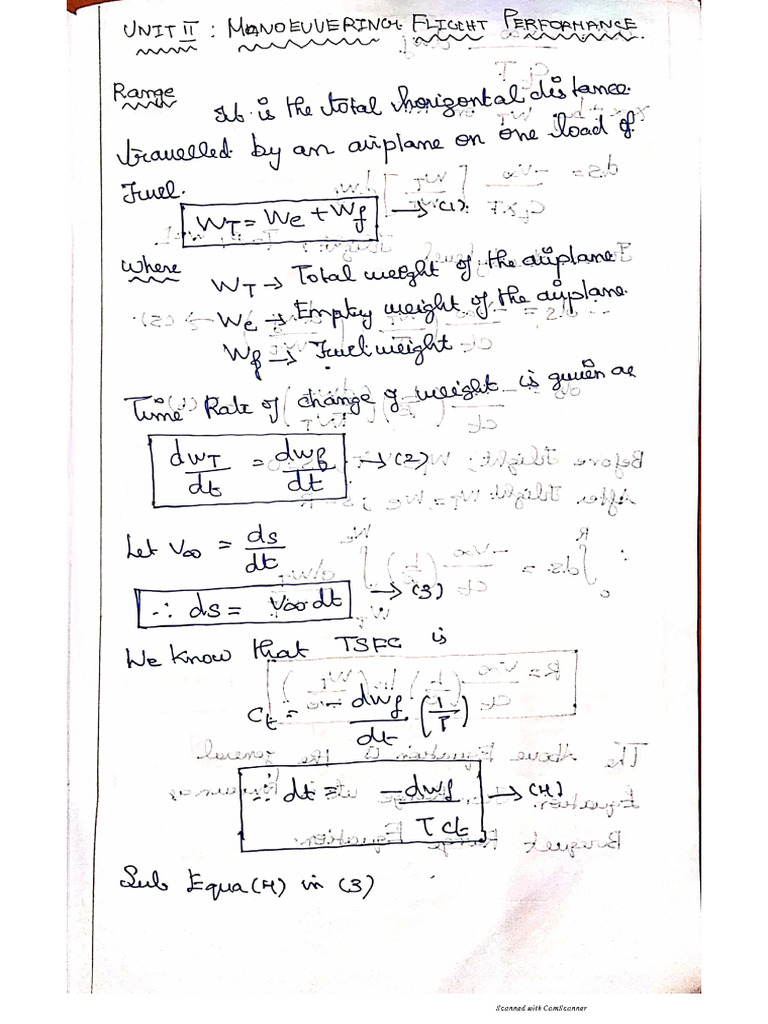 UNIT II : MANOEUVERING FLIGHT PERFORMANCE.
Range It is the total horizontal distance
travelled by an airplane on one load of
Fuel.
W_T = We + W_f → (1)
Where W_T → Total weight of the airplane
We → Empty weight of the airplane
W_f → Fuel weight
Time Rate of change of weight is given as
dW_T/dt = dW_f/dt → (2)
Let V∞ = ds/dt
∴ ds = V∞ dt → (3)
We know that TSFC is
Ct = dW_f/dt (1/T)
∴ dt = -dW_f / T Ct → (4)
Sub Equa (4) in (3)
Scanned with CamScanner